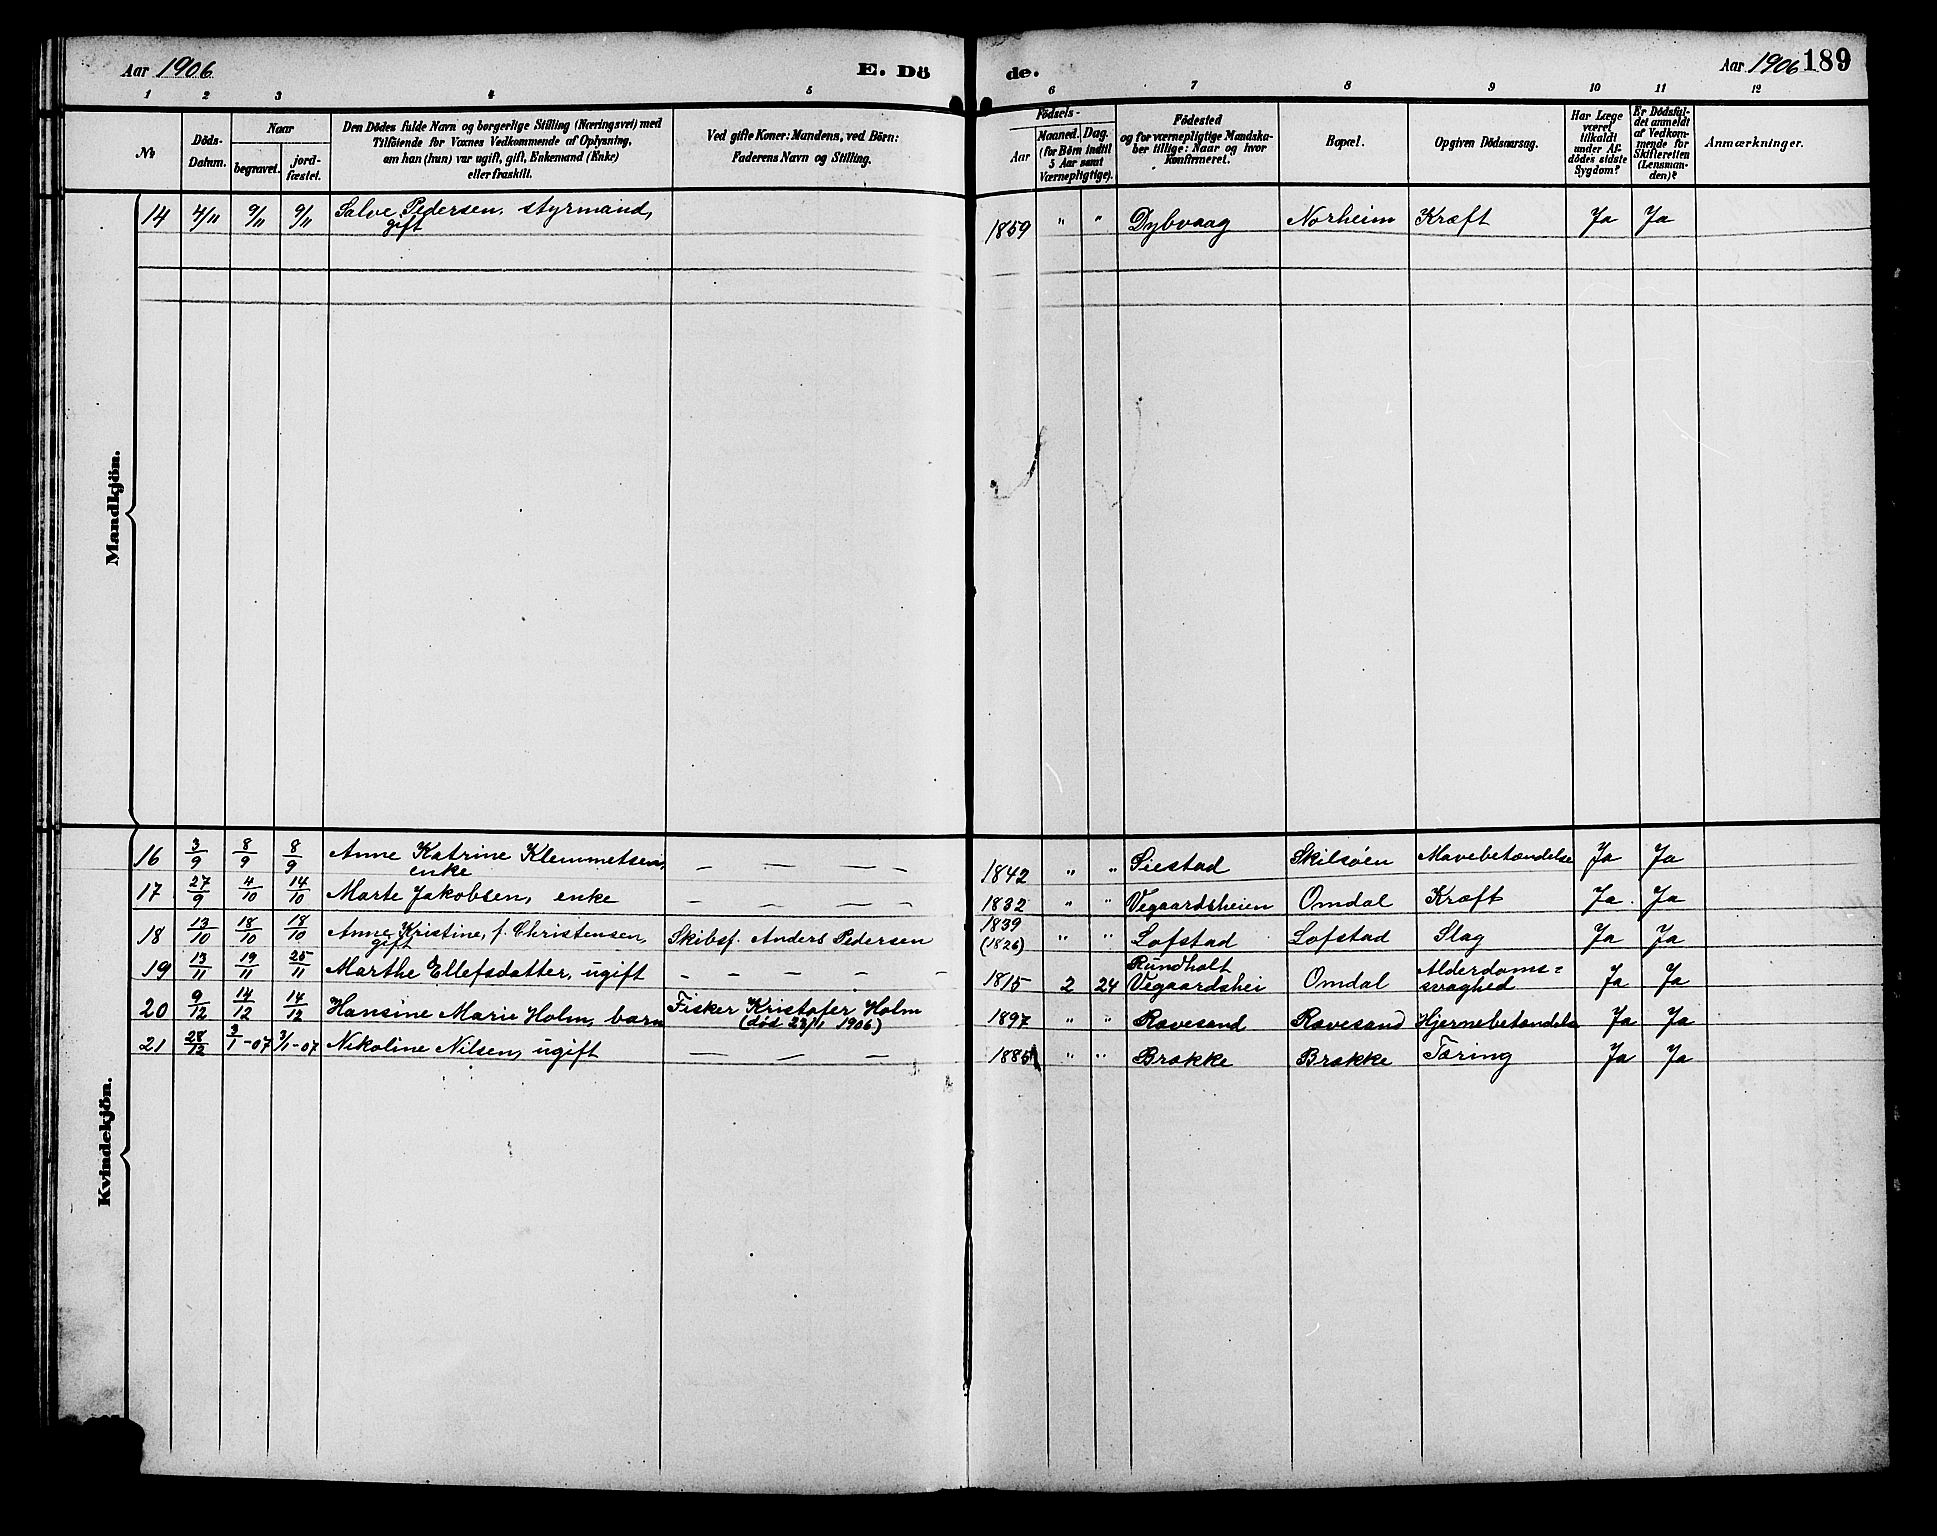 Aar 1906
E. Dö
de.
Aar 1906 189
1 2 3 4 5 6 7 8 9 10 11 12
№
Döds-
Datum.
Naar
begravet.
jord-
fæstet.
Den Dödes fulde Navn og borgerlige Stilling (Næringsvei) med
Tilföiende for Voxnes Vedkommende af Oplysning,
om han (hun) var ugift, gift, Enkemand (Enke)
eller fraskilt.
Ved gifte Koner: Mandens, ved Börn:
Faderens Navn og Stilling.
Födsels-
Aar
Maaned. Dag.
(for Börn indtil
5 Aar samt
Værnepligtige).
Födested
og for værnepligtige Mandska-
ber tillige: Naar og hvor
Konfirmeret.
Bopæl.
Opgiven Dödsaarsag.
Har Læge
været
tilkaldt
under Af-
dödes sidste
Sygdom?
Er Dödsfal-
det anmeldt
af Vedkom-
mende for
Skifteretten
(Lensman-
den)?
Anmærkninger.
Mandkjön.
14 4/11 9/11 9/11 Salve Pedersen, styrmand, 1859 " " Dybvaag Norheim Kræft Ja Ja
gift
Kvindekjön.
16 3/9 8/9 8/9 Anne Katrine Klemmetsen, — — — — 1842 " " Siestad Skilsøen Mavebetændelse Ja Ja
enke
17 27/9 4/10 14/10 Marte Jakobsen, enke — — — — 1832 " " Vegaardsheien Omdal Kræft Ja Ja
18 13/10 18/10 18/10 Anne Kristine, f. Christensen, Skibsf. Anders Pedersen 1839 " " Lofstad Lofstad Slag Ja Ja
gift (1826)
19 13/11 19/11 25/11 Marthe Ellefsdatter, ugift — — — — — 1815 2 24 Rundholt Omdal Alderdoms=
Vegaardshei svaghed Ja Ja
20 9/12 14/12 14/12 Hansine Marie Holm, barn Fisker Kristofer Holm 1897 " " Ravesand Ravesand Hjernebetændelse Ja Ja
(død 23/1 1906)
21 28/12 3/1-07 3/1-07 Nikoline Nilsen, ugift — — — — 1885 " " Brakke Brakke Tæring Ja Ja